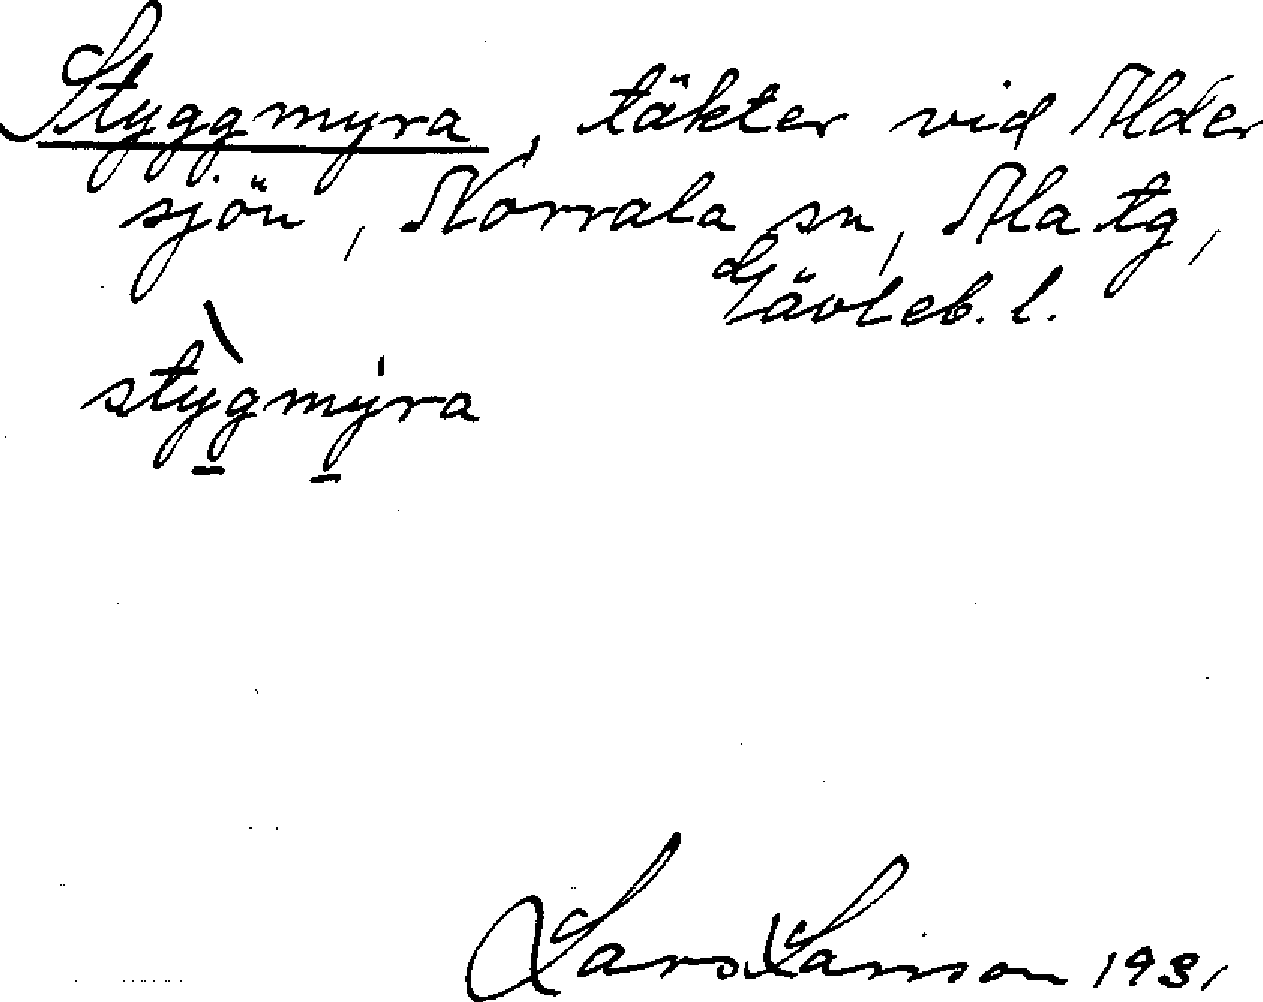 Styggmyra, täkter vid Alder
sjön, Norrala sn, Ala tg,
Gävleb. l.
stygmyra
Lars Larsson 1931